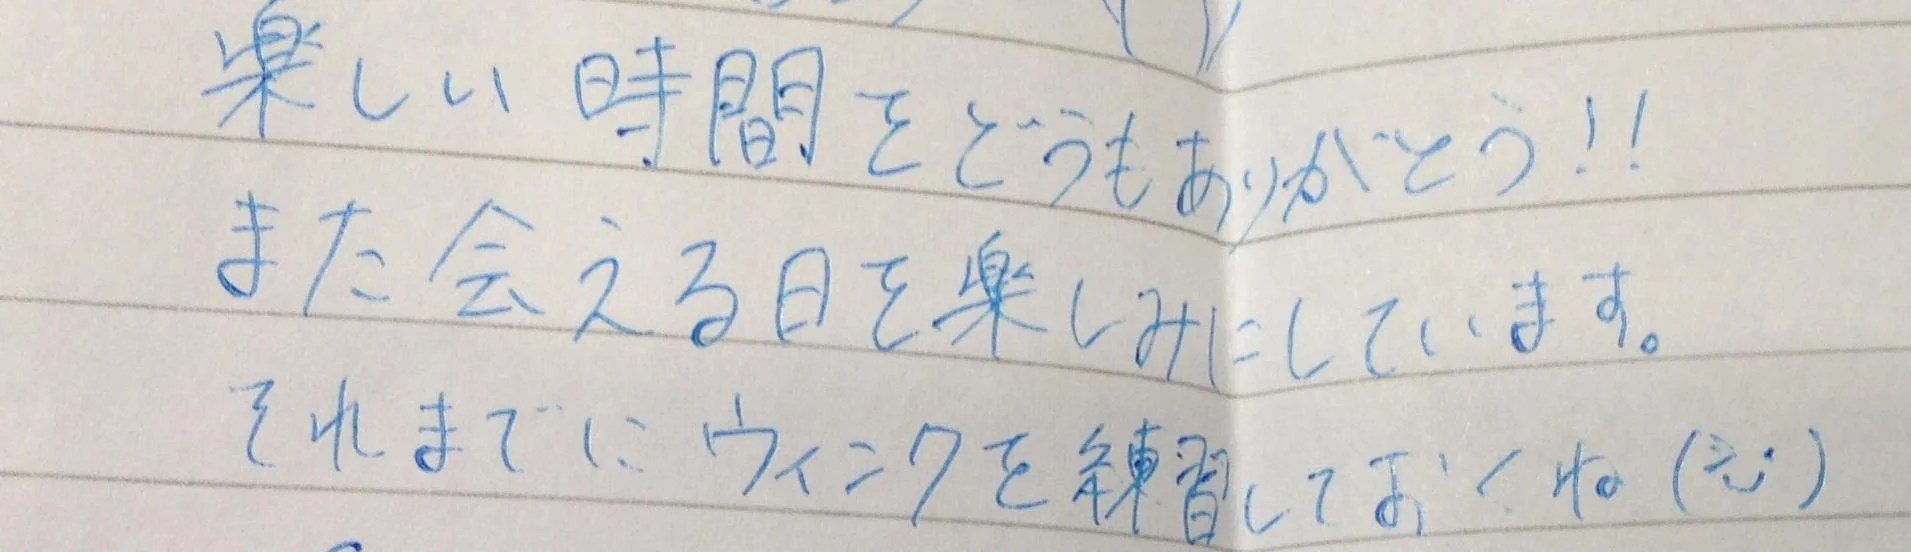 楽しい時間をどうもありがとう!!
また会える日を楽しみにしています。
それまでにウィンクを練習しておくね